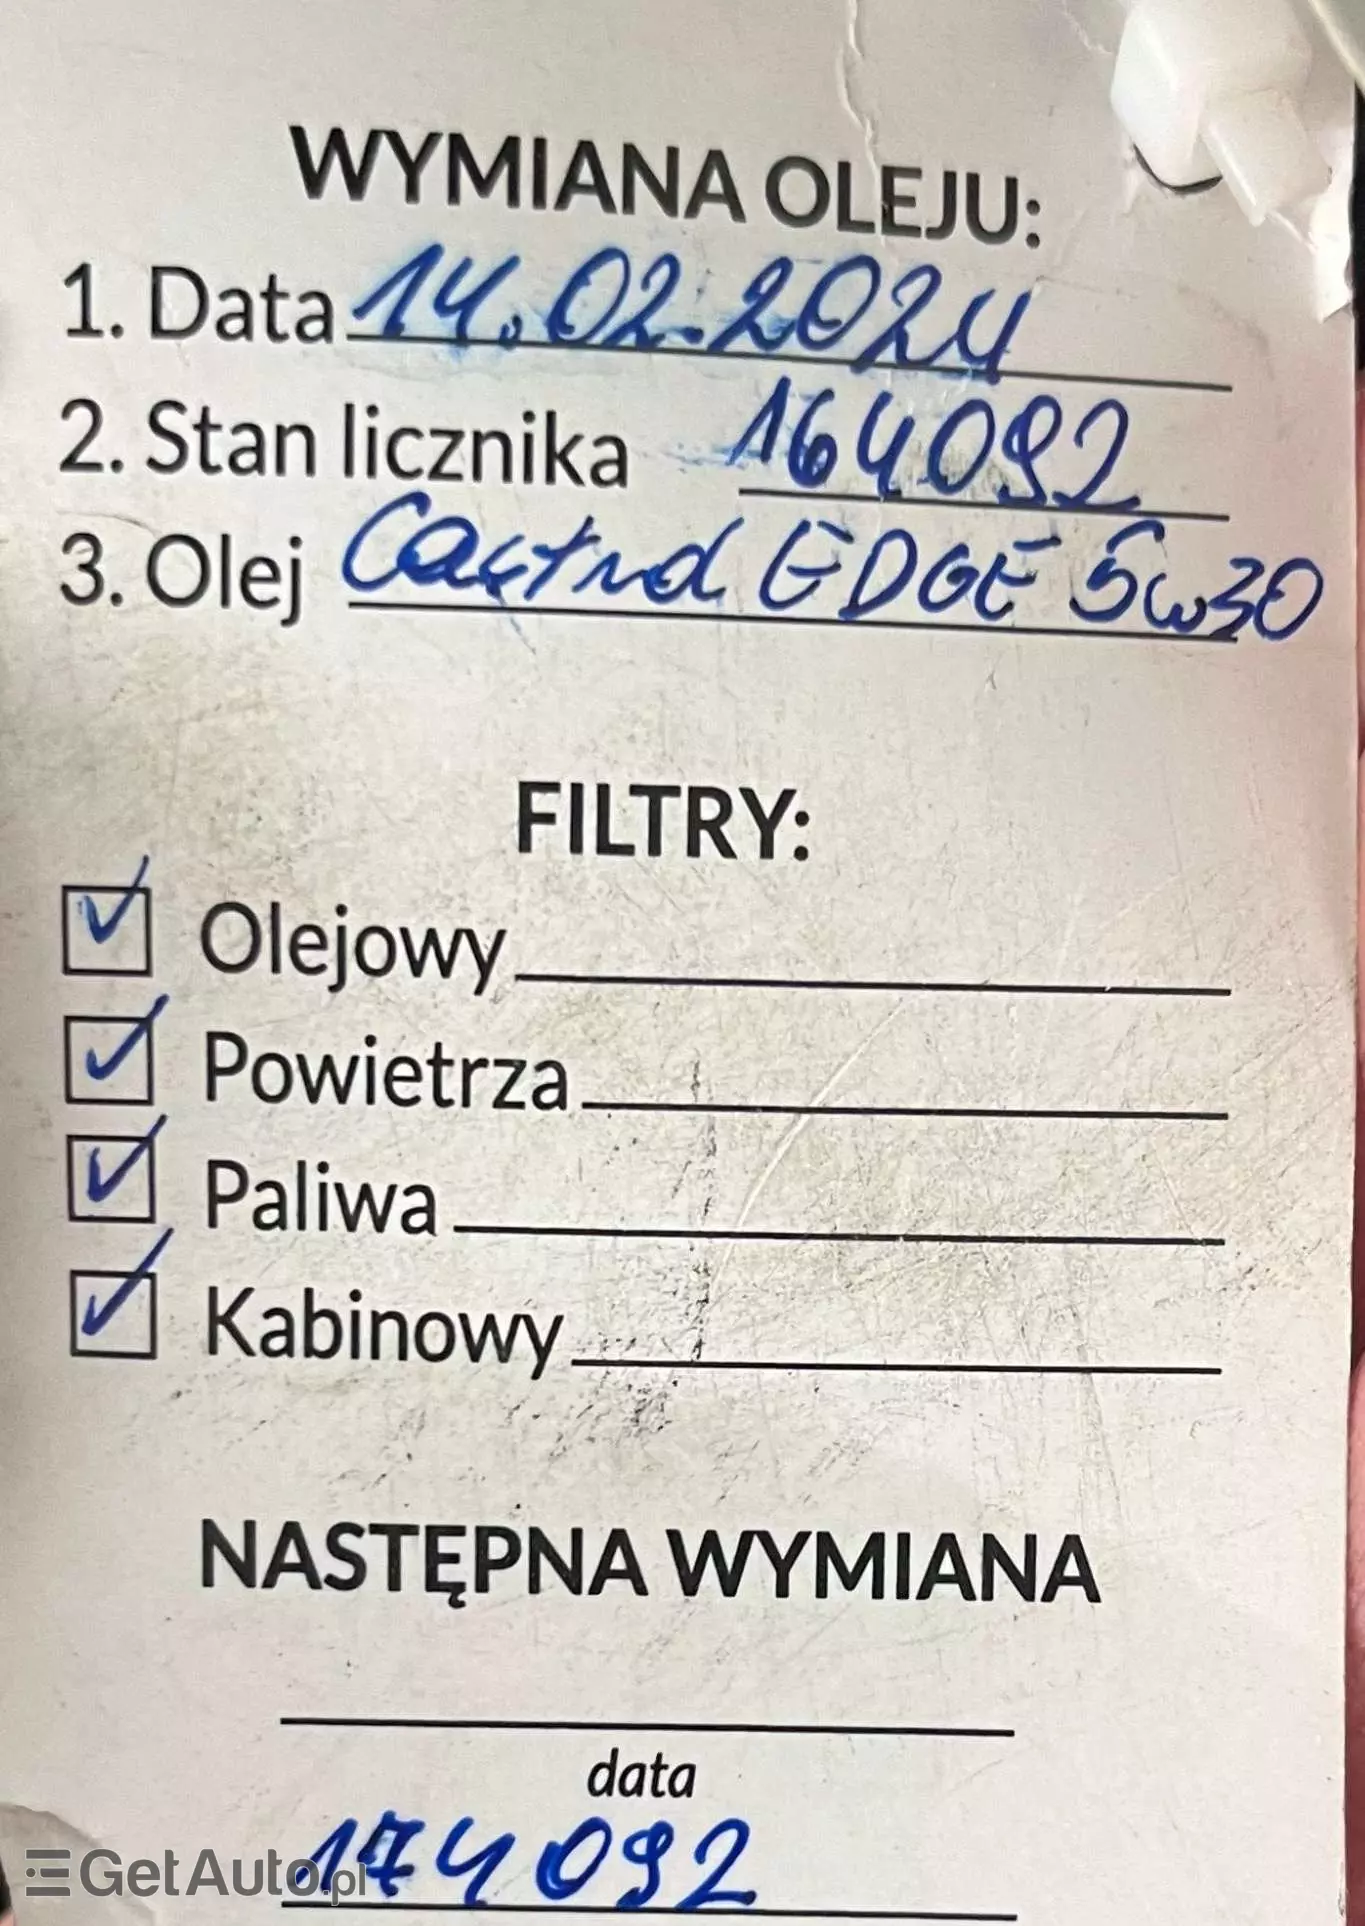 WYMIANA OLEJU:
1. Data 14.02.2024
2. Stan licznika 164092
3. Olej Castrol EDGE 5w30
FILTRY:
Olejowy
Powietrza
Paliwa
Kabinowy
NASTĘPNA WYMIANA
data
174092
GetAuto.pl